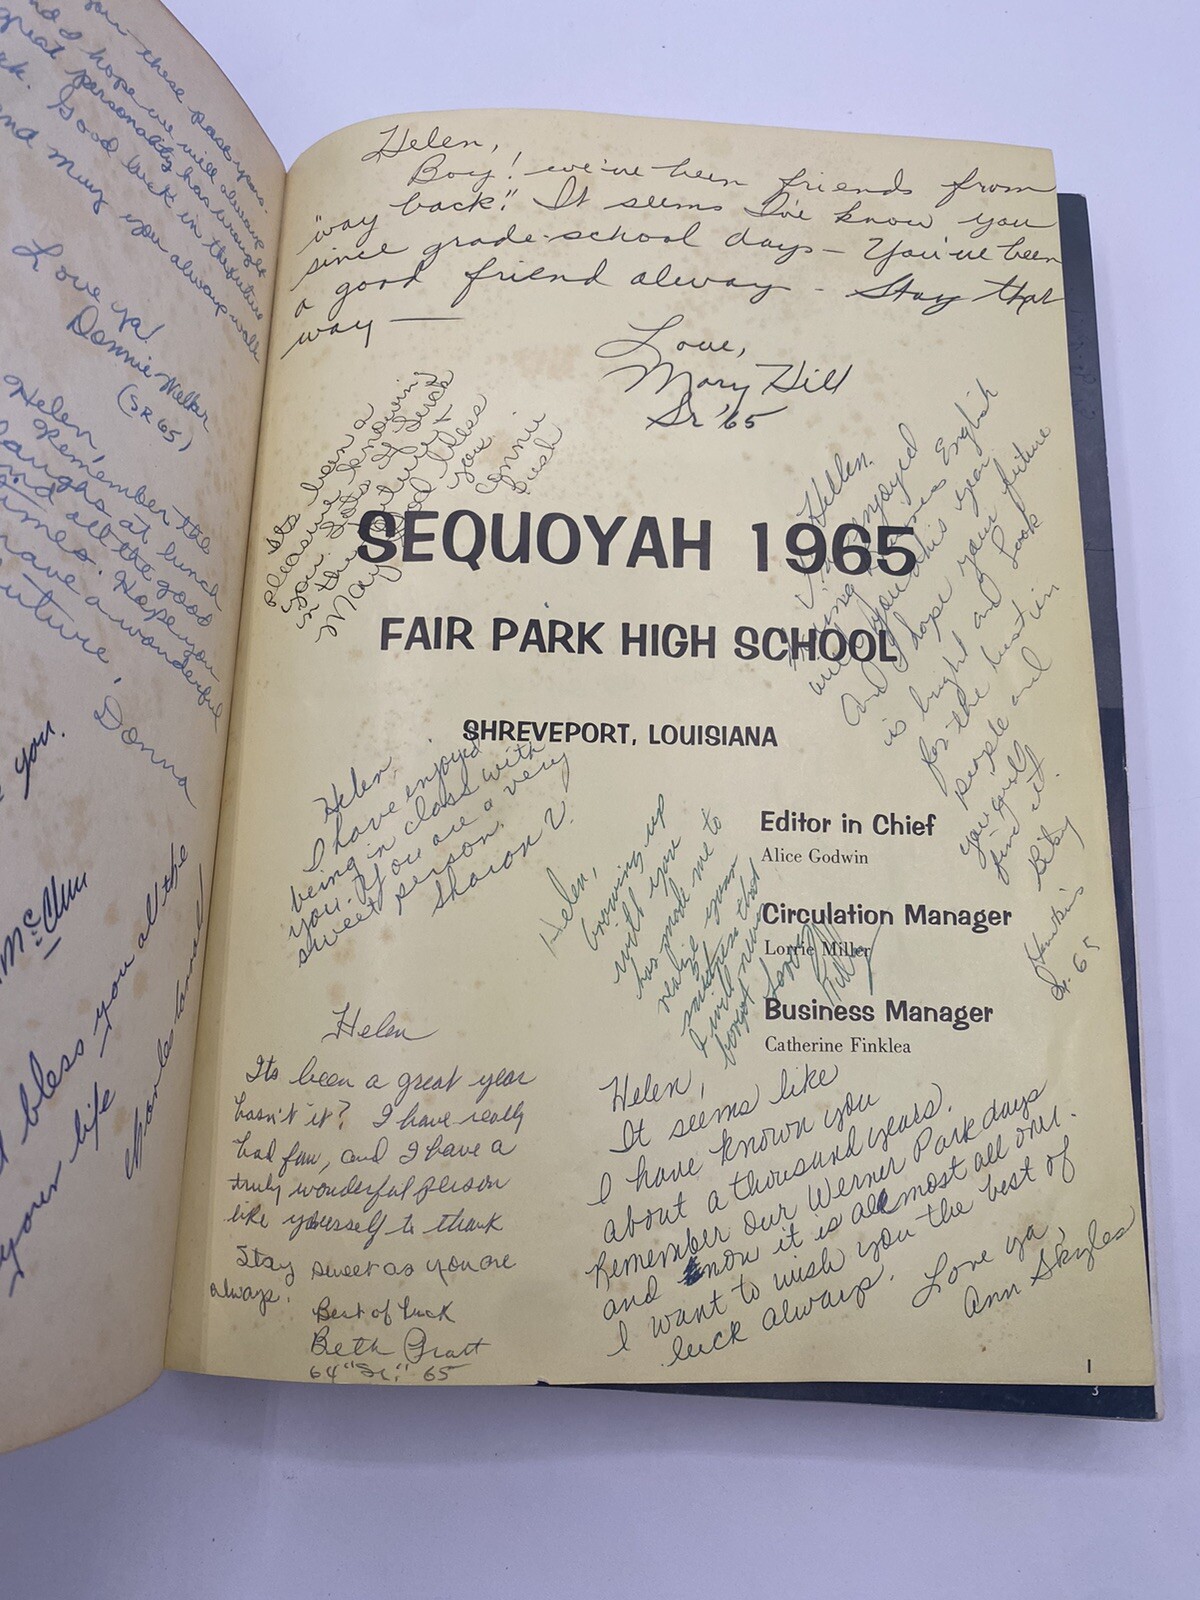 you these past years.
and I hope we will always
great personality has brought
Good luck in the future
and may you always walk
Love ya!
Donnie
(SR 65)
Helen,
Remember the
laughs at lunch
and all the good
times. Hope you
have a wonderful
future,
Donna
you.
McClure
bless you all the
your life
Charles
Helen,
Boy! we've been friends from
"way back." It seems I've know you
since grade-school days — You've been
a good friend alway - Stay that
way —
Love,
Mary Hill
Sr '65
Its been a
pleasure knowing
you. Lots of luck
in the future +
May God bless
you
Connie
Bush
Hellen,
I enjoyed
with you in English
this year
and I hope your future
is bright and look
for the best in
people and
you will
find it.
Betsy
Hawkins
Sr. 65
SEQUOYAH 1965
FAIR PARK HIGH SCHOOL
SHREVEPORT, LOUISIANA
Helen,
I have enjoyed
being in class with
you. You are a very
sweet person.
Sharon V.
Helen,
Growing up
with you
has made me to
realize your
that
I will never
forget
Editor in Chief
Alice Godwin
Circulation Manager
Lorrie Miller
Business Manager
Catherine Finklea
Helen
Its been a great year
hasn't it? I have really
had fun, and I have a
truly wonderful person
like yourself to thank
Stay sweet as you are
always.
Best of luck
Beth Pratt
64 "Sr." 65
Helen,
It seems like
I have known you
about a thousand years.
Remember our Werner Park days
and know it is all most all over.
I want to wish you the best of
luck always.
Love ya,
Ann Skyles
1
3